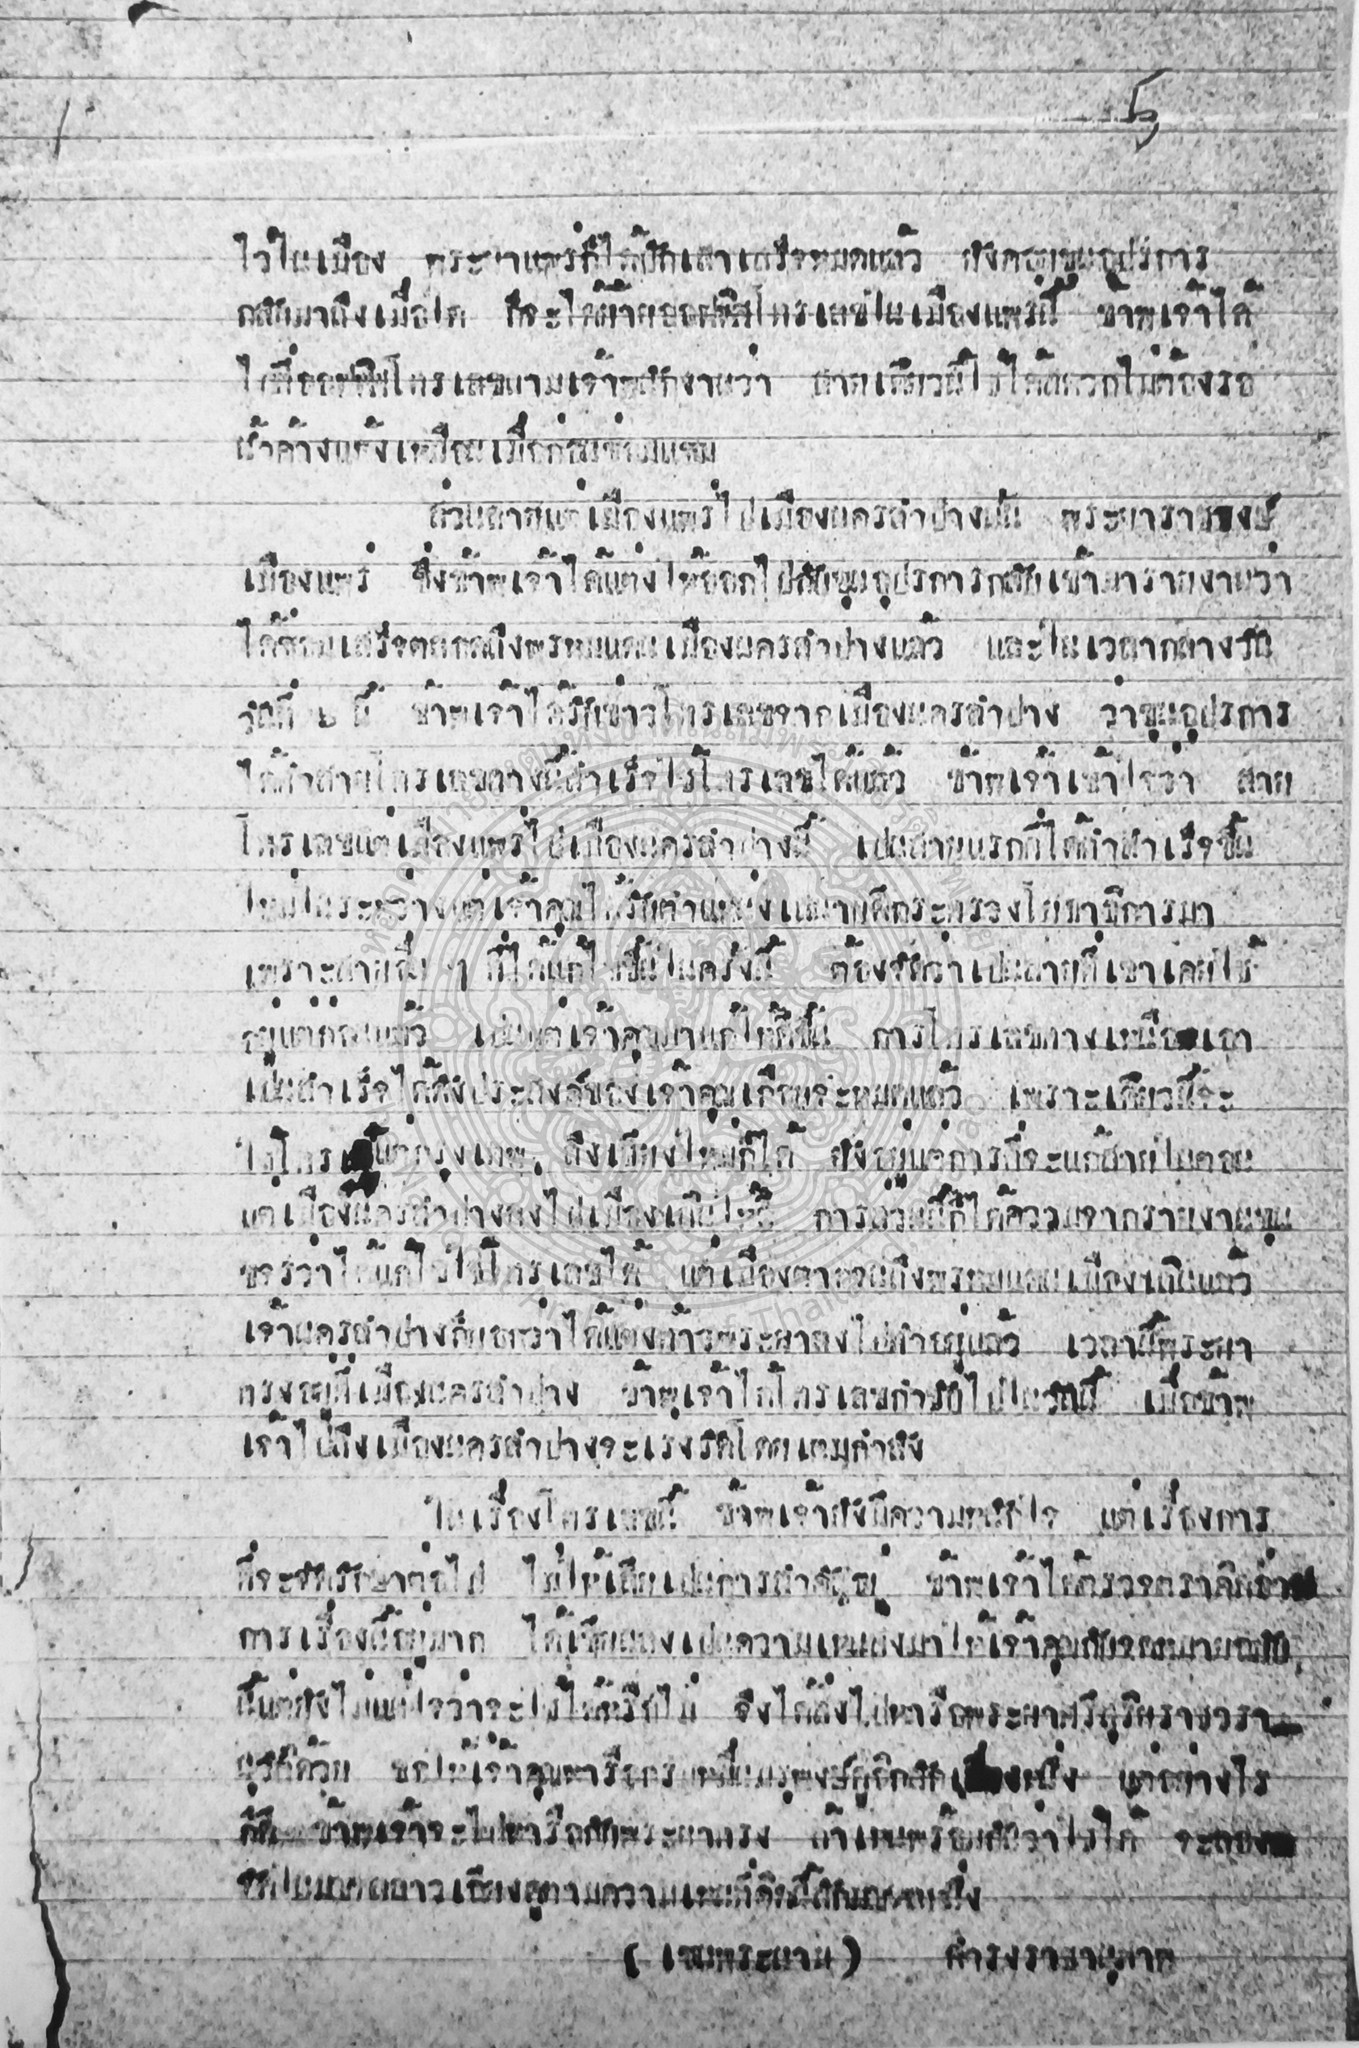 ๕
ไว้ในเมือง พระยาแพร่ก็ได้ปักเสาเสร็จหมดแล้ว ยังคอยขุนอุปรการ
กลับมาถึงเมื่อใด ก็จะได้ย้ายออฟฟิศโทรเลขในเมืองแพร่นี้ ข้าพเจ้าได้
ไปที่ออฟฟิศโทรเลขถามเจ้าพนักงานว่า สายเดี๋ยวนี้ใช้ได้สดวกไม่ต้องรอ
น้ำค้างแห้งเหมือนเมื่อก่อนซ่อมแซม
ส่วนสายแต่เมืองแพร่ไปเมืองนครลำปางนั้น พระยาราชวงษ์
เมืองแพร่ ซึ่งข้าพเจ้าได้แต่งให้ออกไปกับขุนอุปรการกลับเข้ามารายงานว่า
ได้ซ่อมเสร็จตลอดถึงพรหมแดนเมืองนครลำปางแล้ว และในเวลากลางวัน
วันที่ ๖ นี้ ข้าพเจ้าได้รับข่าวโทรเลขจากเมืองนครลำปาง ว่าขุนอุปรการ
ได้ทำสายโทรเลขทางนี้สำเร็จใช้โทรเลขได้แล้ว ข้าพเจ้าเข้าใจว่า สาย
โทรเลขแต่เมืองแพร่ไปเมืองนครลำปางนี้ เปนสายแรกที่ได้ทำสำเร็จขึ้น
ใหม่ในระหว่างแต่เจ้าคุณได้รับตำแหน่งเสนาบดีกระทรวงโยธาธิการมา
เพราะสายอื่น ๆ ที่ได้แก้ไขขึ้นในครั้งนี้ ต้องจัดว่าเปนสายที่เขาเคยใช้
อยู่แต่ก่อนแล้ว เปนแต่เจ้าคุณมาแก้ให้ดีขึ้น การโทรเลขทางเหนือเอา
เปนสำเร็จได้ดังประสงค์ของเจ้าคุณเกือบจะหมดแล้ว เพราะเดี๋ยวนี้จะ
แต่กรุงเทพฯ ถึงเชียงใหม่ก็ได้ ยังอยู่แต่การที่จะแก้สายในตอน
แต่เมืองนครลำปางลงไปเมืองเถินให้ดี การส่วนนี้ก็ได้ความจากรายงานขุน
ขจรว่าได้แก้ไขใช้โทรเลขได้ แต่เมืองตากจนถึงพรหมแดนเมืองเถินแล้ว
เจ้านครลำปางก็บอกว่าได้แต่งท้าวพระยาลงไปทำอยู่แล้ว เวลานี้พระยา
ทรงอยู่ที่เมืองนครลำปาง ข้าพเจ้าได้โทรเลขกำชับไปในวันนี้ เมื่อข้าพ
เจ้าไปถึงเมืองนครลำปางจะเร่งรัดโดยเต็มกำลัง
ในเรื่องโทรเลขนี้ ข้าพเจ้ายังมีความหนักใจ แต่เรื่องการ
ที่จะจัดรักษาต่อไป ไม่ให้เสียเปนการสำคัญอยู่ ข้าพเจ้าได้ตรวจตราคิดอ่าน
การเรื่องนี้อยู่มาก ได้เขียนลงเปนความเห็นส่งมาให้เจ้าคุณกับจดหมายฉบับ
นี้แต่ยังไม่แน่ใจว่าจะใช้ได้หรือไม่ จึงได้ส่งไปหารือพระยาศรีสุริยราชวรา
นุวัติด้วย ขอให้เจ้าคุณหารือกรมหมื่นมรุพงษ์ดูอีกสักหนึ่ง แต่อย่างไร
ก็ดี ข้าพเจ้าจะไปหารือกับพระยาทรง ถ้าเห็นพร้อมกันว่าใช้ได้ จะลอง
จัดในมณฑลลาวเฉียงดูตามความเห็นที่คิดนี้สักมณฑลหนึ่ง
( เซ็นพระนาม ) ดำรงราชานุภาพ